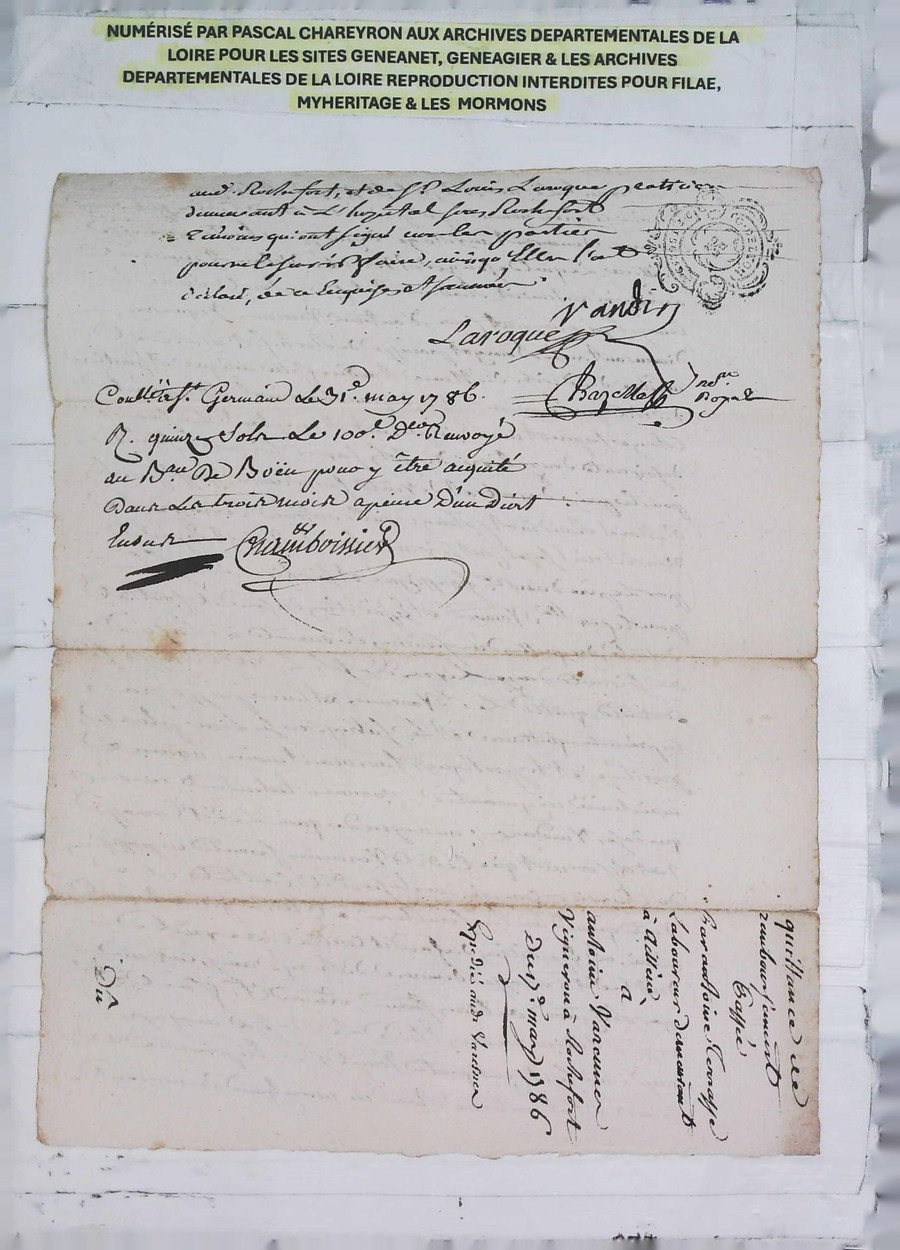 NUMÉRISÉ PAR PASCAL CHAREYRON AUX ARCHIVES DEPARTEMENTALES DE LA
LOIRE POUR LES SITES GENEANET, GENEAGIER & LES ARCHIVES
DEPARTEMENTALES DE LA LOIRE REPRODUCTION INTERDITES POUR FILAE,
MYHERITAGE & LES MORMONS
aud. Rochefort, et de Sr. Louis Laroque praticien
demeurant à L'hopital sous Rochefort
témoins qui ont signé non les parties
pour ne le savoir faire, ainsy qu'elles l'ont
déclaré, de ce enquises et sommées
Vandin
Laroque
Conllé à St. Germain Le 31e. may 1786.
Chazelles
nore.
Royal
R. quinze Sols Le 100e. Der. Renvoyé
au Bau. De Boën pour y être acquité
Dans les trois mois a peine D'un Droit
En sus
Chamboissier
quittance de
remboursement
passée
par antoine Terrasse
Laboureur demeurant
à Ailleux
a
antoine Varenne
Vigneron à Rochefort
Du may 1786
Expedié aud. Varenne